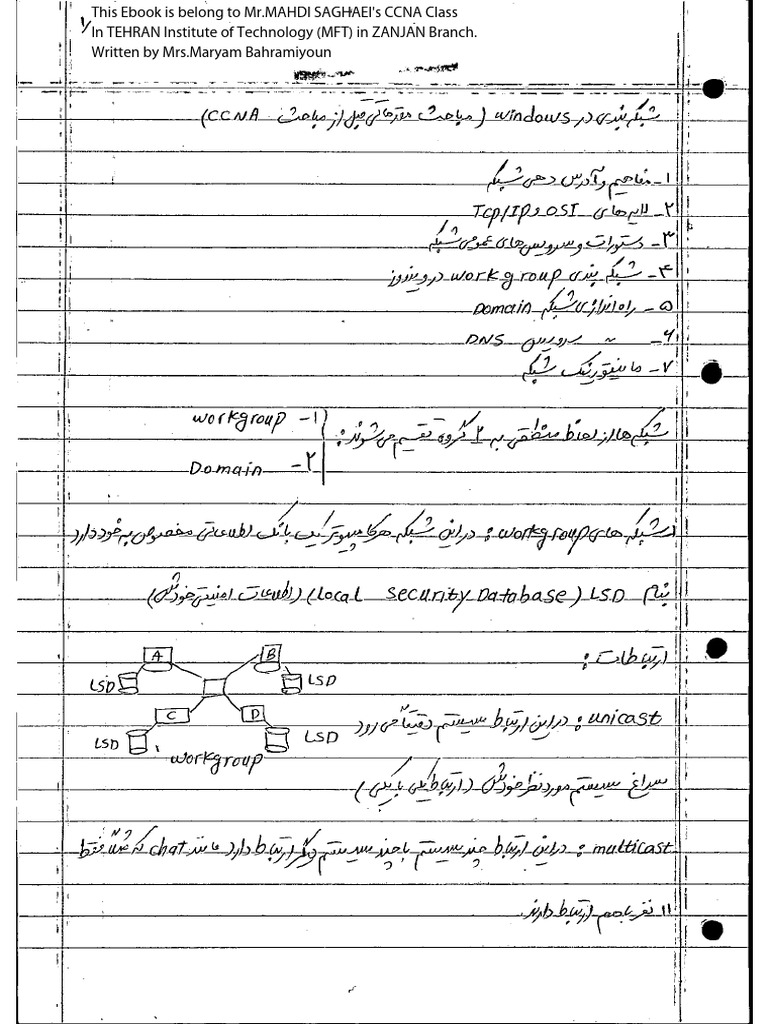 This Ebook is belong to Mr.MAHDI SAGHAEI's CCNA Class
In TEHRAN Institute of Technology (MFT) in ZANJAN Branch.
Written by Mrs.Maryam Bahramiyoun
۱/
شبکه بندی در windows (مباحث مقدماتی قبل از مباحث CCNA)
۱- مفاهیم و آدرس دهی شبکه
۲- لایه های OSI و Tcp/IP
۳- دستورات و سرویس های عمومی شبکه
۴- شبکه بندی workgroup در ویندوز
۵- راه اندازی شبکه Domain
۶- " سرویس DNS
۷- مانیتورینگ شبکه
شبکه ها از لحاظ منطقی به ۲ گروه تقسیم می شوند:
۱- workgroup
۲- Domain
شبکه های workgroup: در این شبکه هر کامپیوتر یک بانک اطلاعاتی مخصوص به خود دارد
بنام LSD (Local Security Database) (اطلاعات امنیتی خودش)
ارتباطات:
A
B
LSD
LSD
C
D
LSD
LSD
workgroup
unicast: در این ارتباط سیستم دقیقاً می رود
سراغ سیستم مورد نظر خودش (ارتباط یکی با یکی)
multicast: در این ارتباط چند سیستم با چند سیستم دیگر ارتباط دارد مانند chat که مثلاً فقط
۱۱ نفر با هم ارتباط دارند.